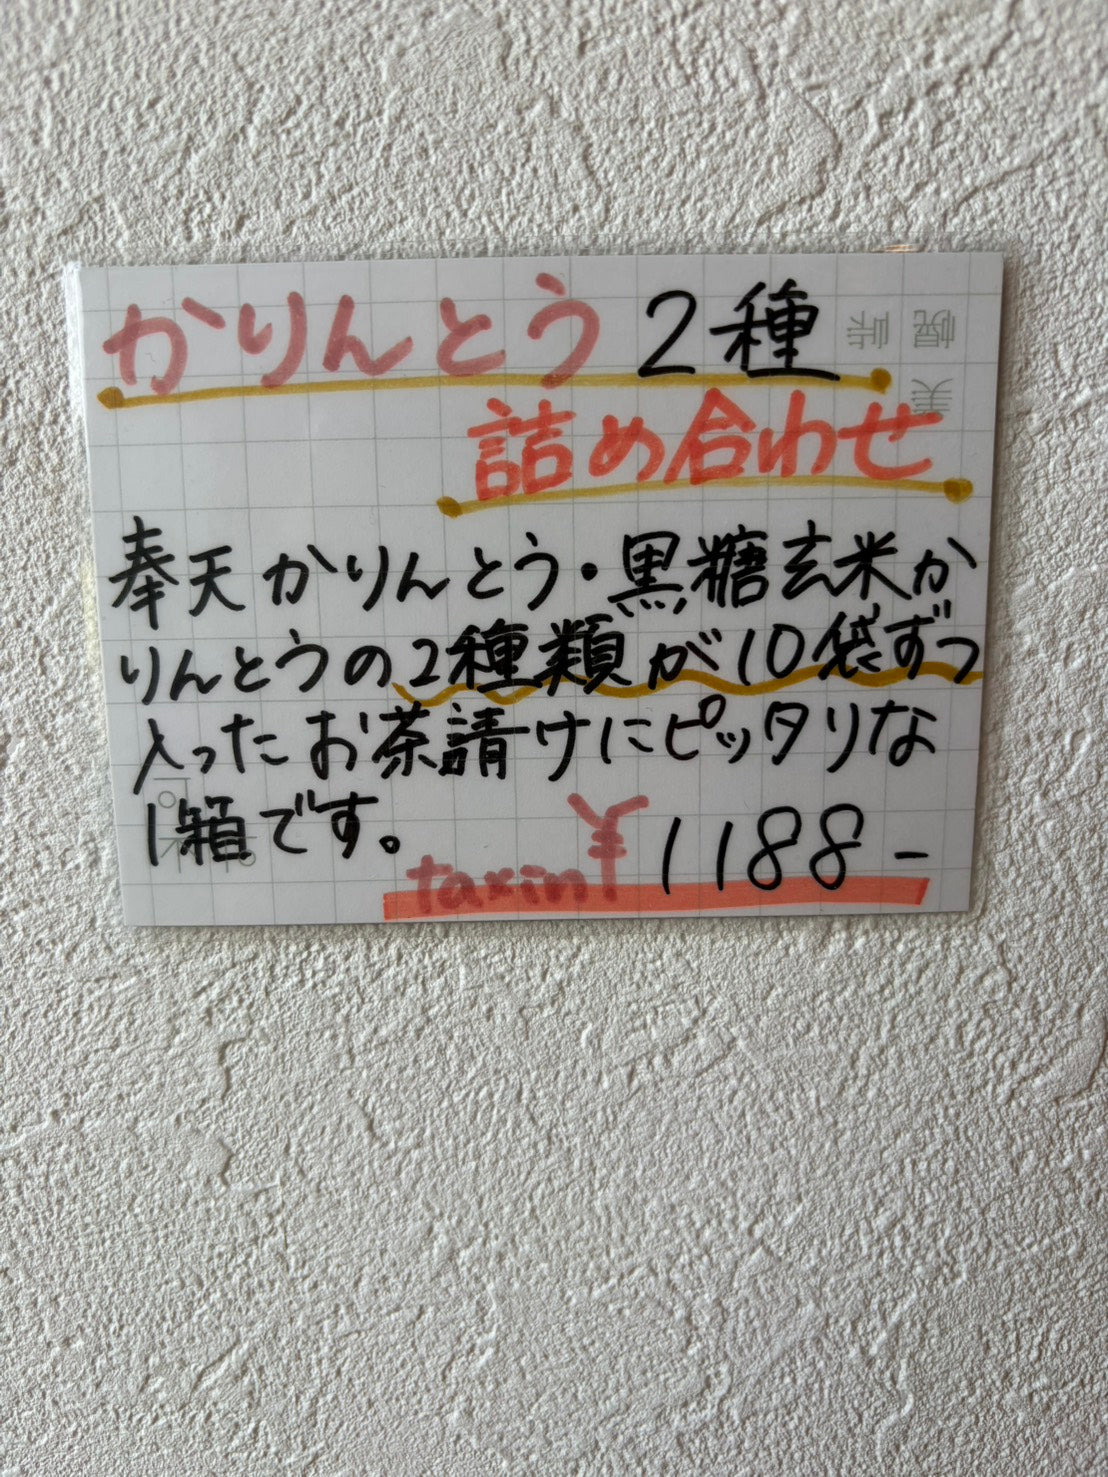 かりんとう 2種
詰め合わせ
奉天かりんとう・黒糖玄米か
りんとうの2種類が10袋ずつ
入ったお茶請けにピッタリな
1箱です。
taxin ¥1188-
美幌峠